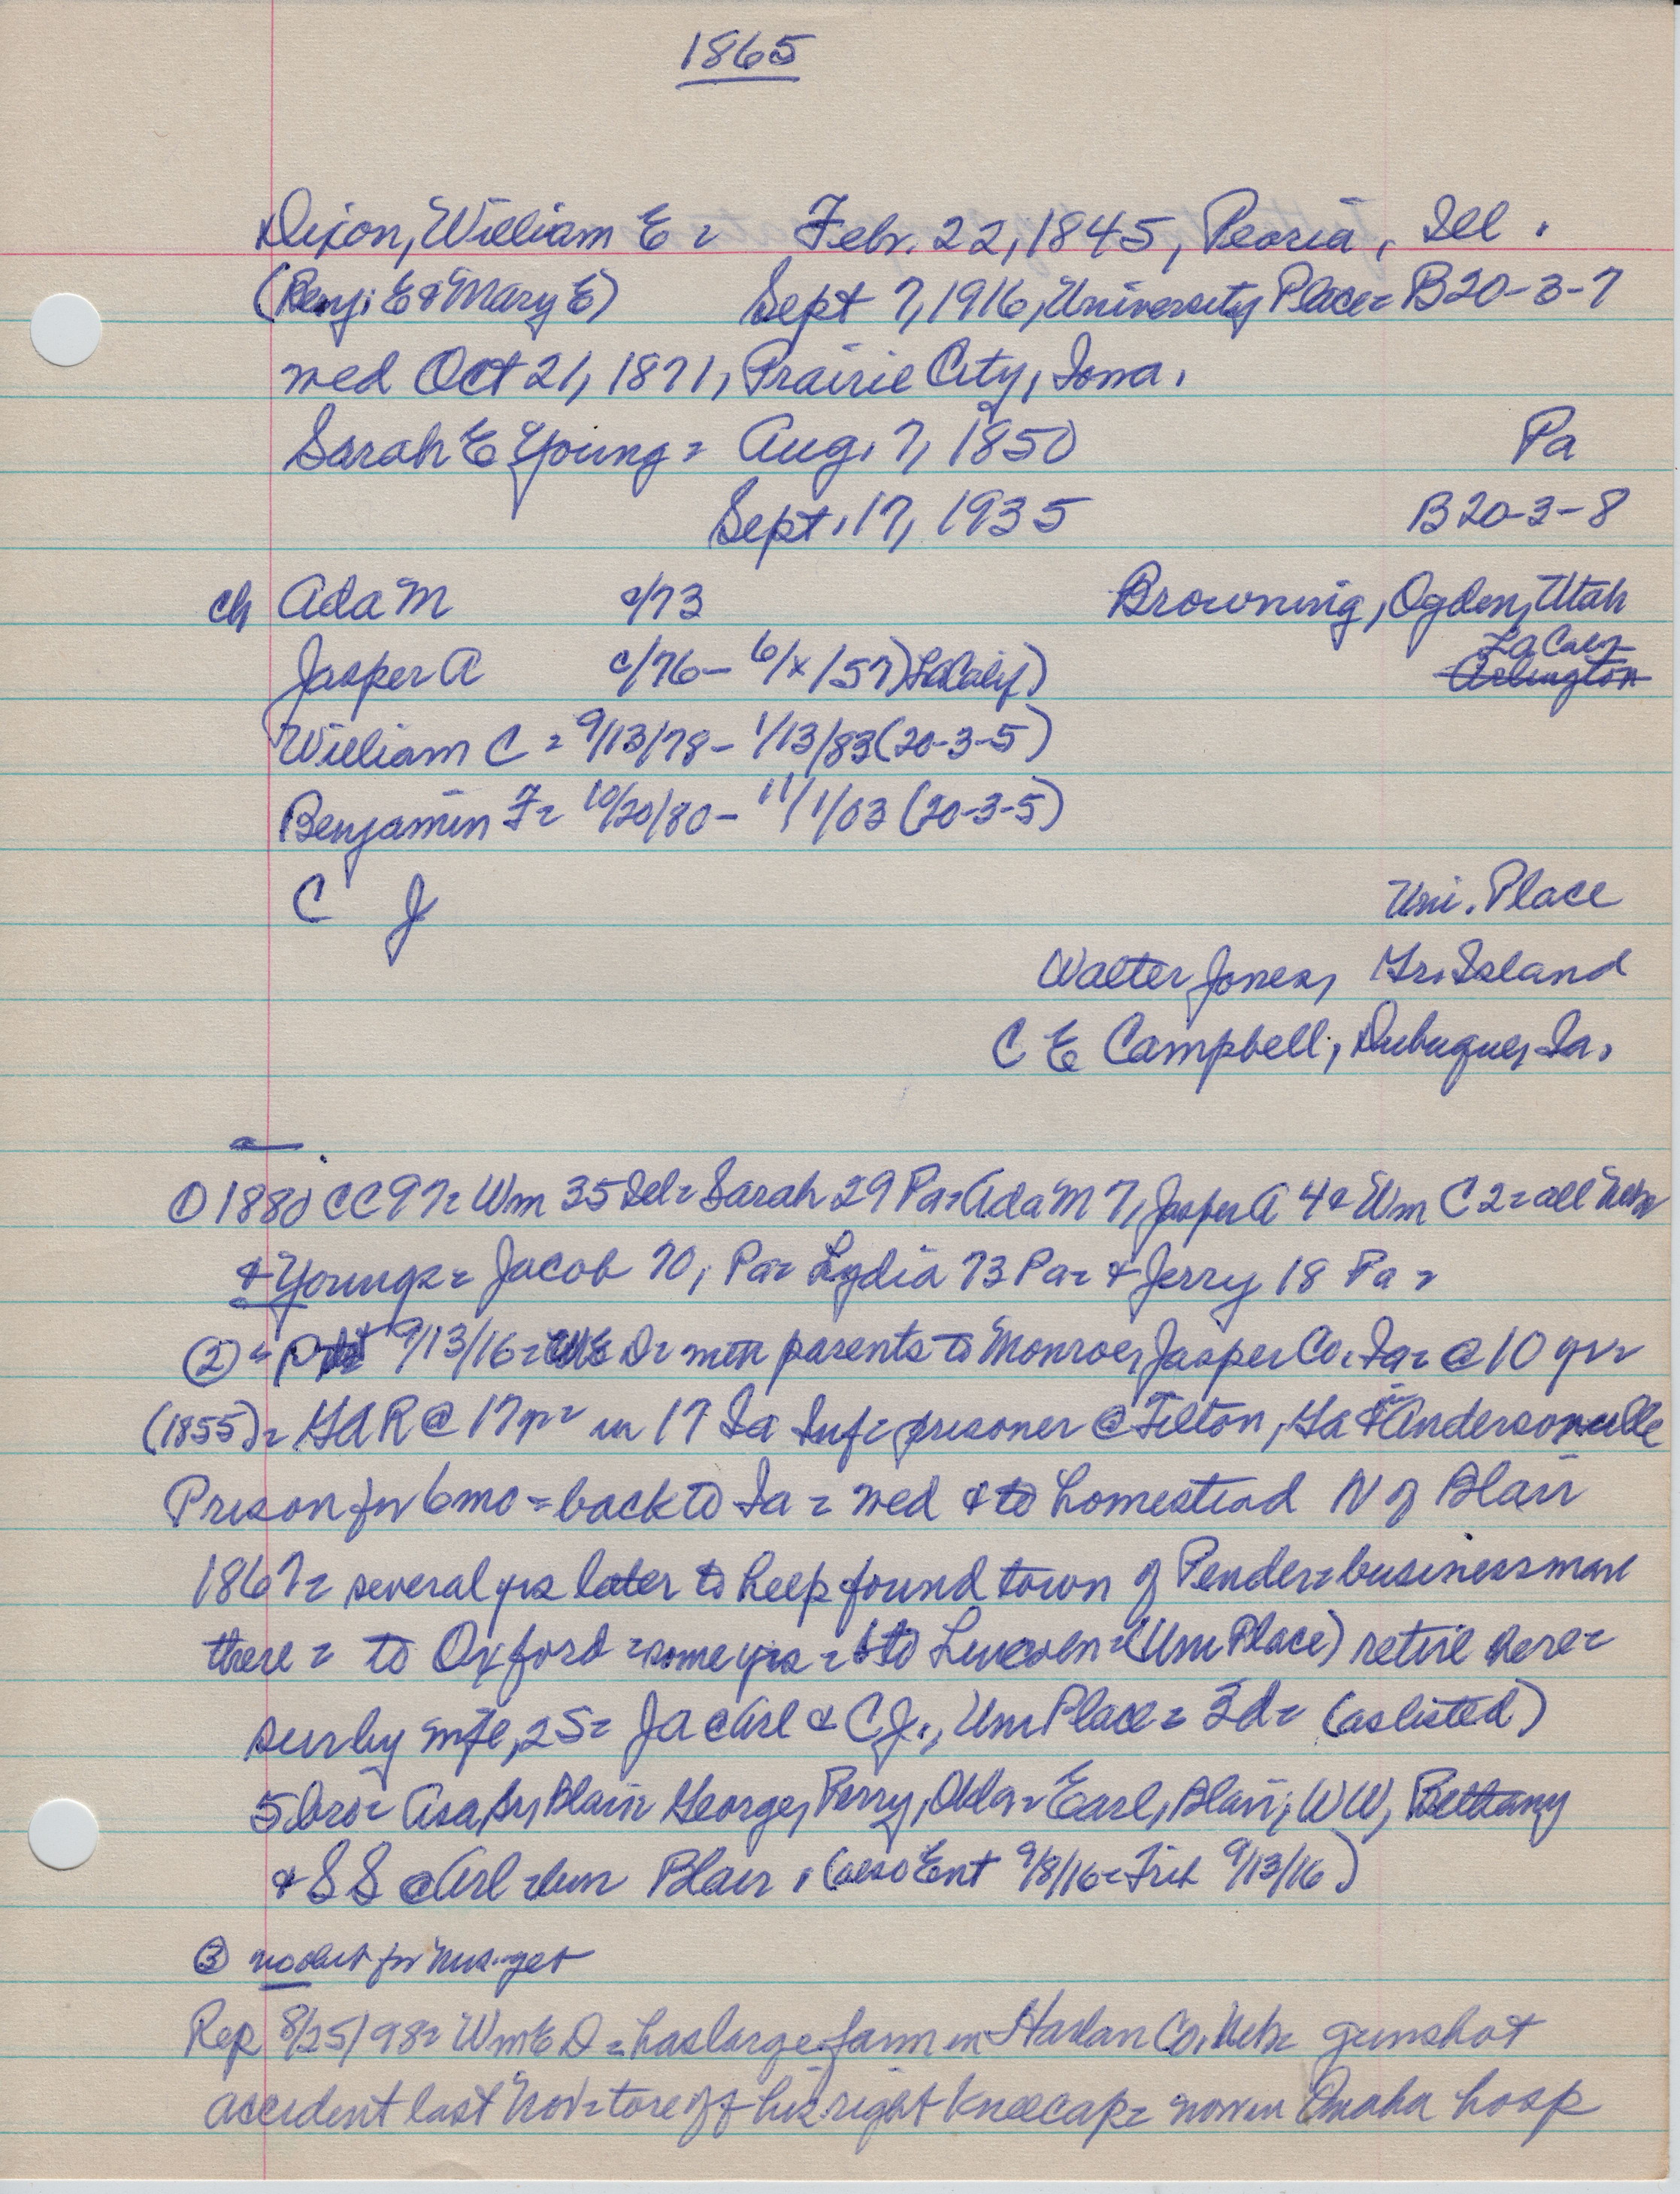 1865
Dixon, William E = Febr. 22, 1845, Peoria, Ill.
(Benj. E & Mary E) Sept 7, 1916, University Place = B20-3-7
wed Oct 21, 1871, Prairie City, Iowa.
Sarah E Young = Aug. 7, 1850 Pa
Sept. 17, 1935 B 20-3-8
ch Ada M c/73 Browning, Ogden, Utah
Jasper A c/76 - 6/x/57) LaCalif) La Calif
Arlington
William C = 9/13/78 - 1/13/83 (20-3-5)
Benjamin F = 10/20/80 - 11/1/03 (20-3-5)
C J Uni. Place
Walter Jones, Gr. Island
C E Campbell, Dubuque, Ia.
① 1880 CC 97 = Wm 35 Ill = Sarah 29 Pa = Ada M 7, Jasper A 4 & Wm C 2 = all Nebr
& Youngs = Jacob 70, Pa = Lydia 73 Pa = & Jerry 18 Pa =
② = 9/13/16 = D = with parents to Monroe, Jasper Co. Ia = @ 10 yr =
(1855) = GAR @ 17 yr = in 17 Ia Inf = prisoner @ Tilton, Ga & in Andersonville
Prison for 6 mo = back to Ia = wed & to homestead N of Blair
1867 = several yrs later to help found town of Pender = businessman
there = to Oxford = some yrs = to Lincoln = (Uni Place) retire here =
sur by wife, 2S = J A @ Arl & C J., Uni Place = 3d = (as listed)
5 bro = Asa, Sr, Blair = George, Perry, Okla = Earl, Blair; W W, Bethany
& S S @ Arl = bur Blair. (also Ent 9/8/16 = Trib 9/13/16)
③ no obit for Mrs. yet
Rep 8/25/98 = Wm E D = has large farm in Harlan Co. Neb = gunshot
accident last Nov = tore off his right kneecap = now in Omaha hosp